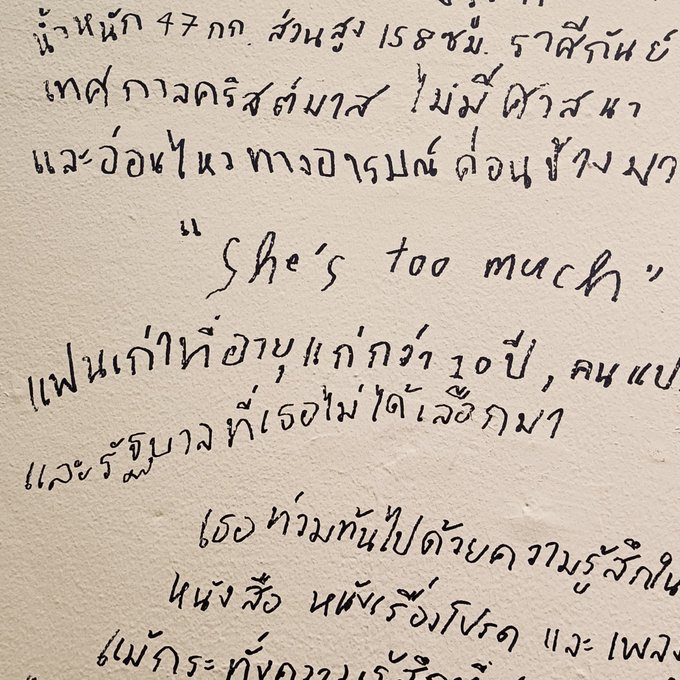 น้ำหนัก 47 กก. ส่วนสูง 158 ซม. ราศีกันย์
เทศกาลคริสต์มาส ไม่มีศาสนา
และอ่อนไหวทางอารมณ์ค่อนข้างมา
"She's too much"
แฟนเก่าที่อายุแก่กว่า 10 ปี, คนแป
และรัฐบาลที่เธอไม่ได้เลือกมา
เธอท่วมท้นไปด้วยความรู้สึกใน
หนังสือ หนังเรื่องโปรด และ เพลง
แม้กระทั่งความรู้สึกที่